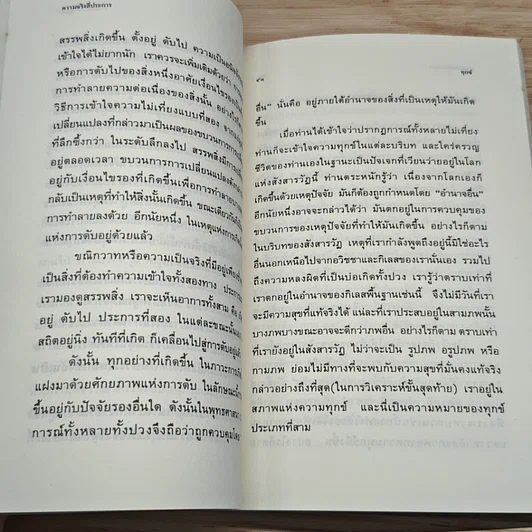 ความจริงสี่ประการ
สรรพสิ่งเกิดขึ้น ตั้งอยู่ ดับไป ความเป็นอนิจ
เข้าใจได้ไม่ยากนัก เราควรจะเพิ่มเติมด้วยว่า การ
หรือการดับไปของสิ่งหนึ่งอาศัยเงื่อนไขของ
การทำลายความต่อเนื่องของสิ่งนั้น อย่างไร
วิธีการเข้าใจความไม่เที่ยงแบบที่สอง จาก
เปลี่ยนแปลงที่กล่าวมาเป็นผลของขบวนการ
ที่ลึกซึ้งกว่า ในระดับลึกลงไป สรรพสิ่งมีการ
อยู่ตลอดเวลา ขบวนการการเปลี่ยนแปลง
อยู่กับเงื่อนไขของที่เกิดขึ้นเพื่อการทำลาย
กลับเป็นเหตุที่ทำให้สิ่งนั้นเกิดขึ้น ขณะเดียวกัน
การทำลายลงด้วย อีกนัยหนึ่ง ในเหตุแห่งการ
แห่งการดับอยู่ด้วยแล้ว
ขณิกวาทหรือความเป็นจริงที่มีอยู่เพียง
เป็นสิ่งที่ต้องทำความเข้าใจทั้งสองทาง ประการ
เรามองดูสรรพสิ่ง เราจะเห็นอาการทั้งสาม คือ
อยู่ ดับไป ประการที่สอง ในแต่ละขณะนั้น
สถิตอยู่นิ่ง ทันทีที่เกิด ก็เคลื่อนไปสู่การดับ
ดังนั้น ทุกอย่างที่เกิดขึ้น ในภาวะการ
แฝงมาด้วยศักยภาพแห่งการดับ ในลักษณะ
ขึ้นอยู่กับปัจจัยรองอื่นใด ดังนั้นในพุทธศาสนา
การณ์ทั้งหลายทั้งปวงจึงถือว่าถูกควบคุมโดย
ทุกข์
อื่น" นั่นคือ อยู่ภายใต้อำนาจของสิ่งที่เป็นเหตุให้มันเกิด
ขึ้น
เมื่อท่านได้เข้าใจว่าปรากฏการณ์ทั้งหลายไม่เที่ยง
ท่านก็จะเข้าใจความทุกข์ในแต่ละบริบท และใคร่ครวญ
ชีวิตของท่านเองในฐานะเป็นปัจเจกที่เวียนว่ายอยู่ในโลก
แห่งสังสารวัฏนี้ ท่านตระหนักรู้ว่า เนื่องจากโลกเองก็
เกิดขึ้นด้วยเหตุปัจจัย มันก็ต้องถูกกำหนดโดย "อำนาจอื่น"
อีกนัยหนึ่งอาจจะกล่าวได้ว่า มันตกอยู่ในการควบคุมของ
ขบวนการของเหตุปัจจัยที่ทำให้มันเกิดขึ้น อย่างไรก็ตาม
ในบริบทของสังสารวัฏ เหตุที่เรากำลังพูดถึงอยู่นี้มิใช่อะไร
อื่นนอกเหนือไปจากอวิชชาและกิเลสของเรานั่นเอง รวมไป
ถึงความหลงผิดที่เป็นบ่อเกิดทั้งปวง เรารู้ว่าตราบเท่าที่
เราตกอยู่ในอำนาจของกิเลสพื้นฐานเช่นนี้ จึงไม่มีวันที่เรา
จะมีความสุขที่แท้จริงได้ แน่ละที่เราประสบอยู่ในสามภพนั้น
บางภพบางขณะอาจจะดีกว่าภพอื่น อย่างไรก็ตาม ตราบเท่า
ที่เรายังอยู่ในสังสารวัฏ ไม่ว่าจะเป็น รูปภพ อรูปภพ หรือ
กามภพ ย่อมไม่มีทางที่จะพบกับความสุขที่มั่นคงแท้จริง
กล่าวอย่างถึงที่สุด(ในการวิเคราะห์ขั้นสุดท้าย) เราอยู่ใน
สภาพแห่งความทุกข์ และนี่เป็นความหมายของทุกข์
ประเภทที่สาม